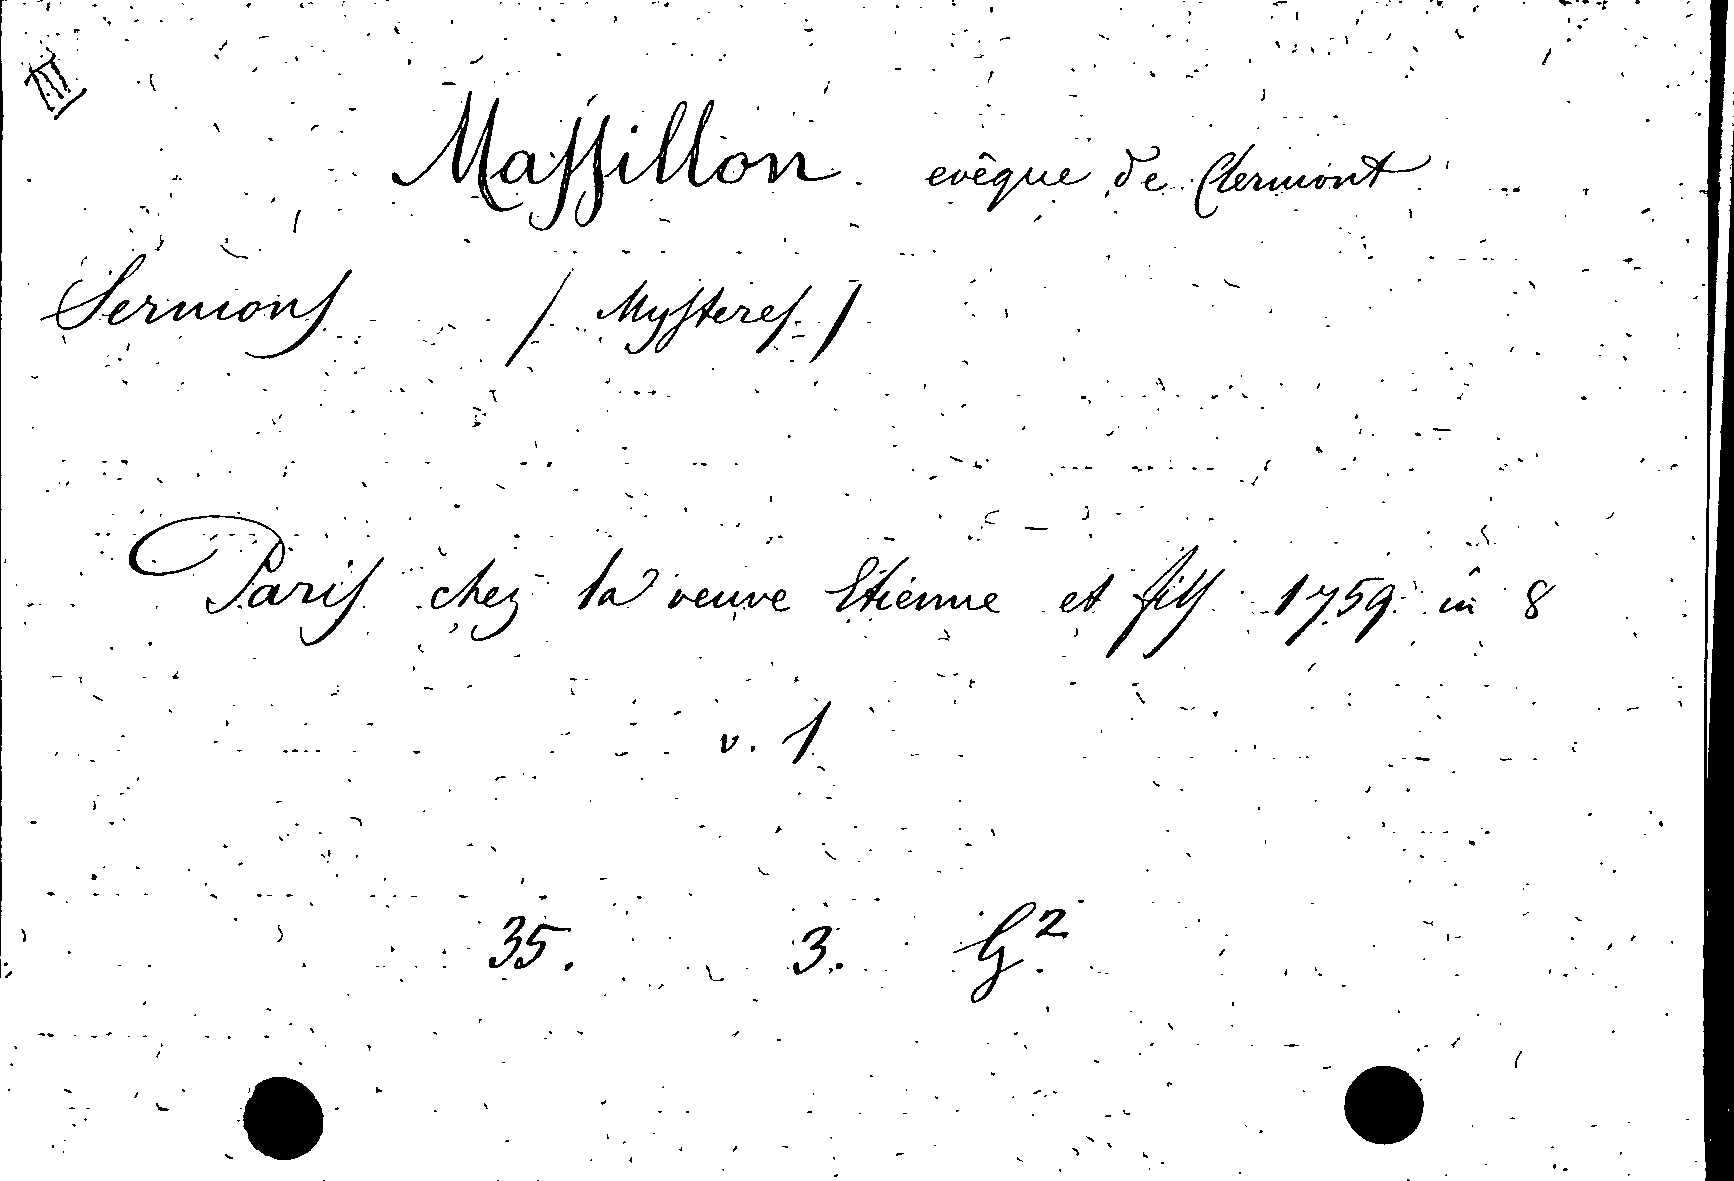 Maſſillon evêque de Clermont
Sermonſ / Myſtereſ /
Pariſ chez la veuve Etienne et filſ 1759 in 8
v. 1
35. 3. G²